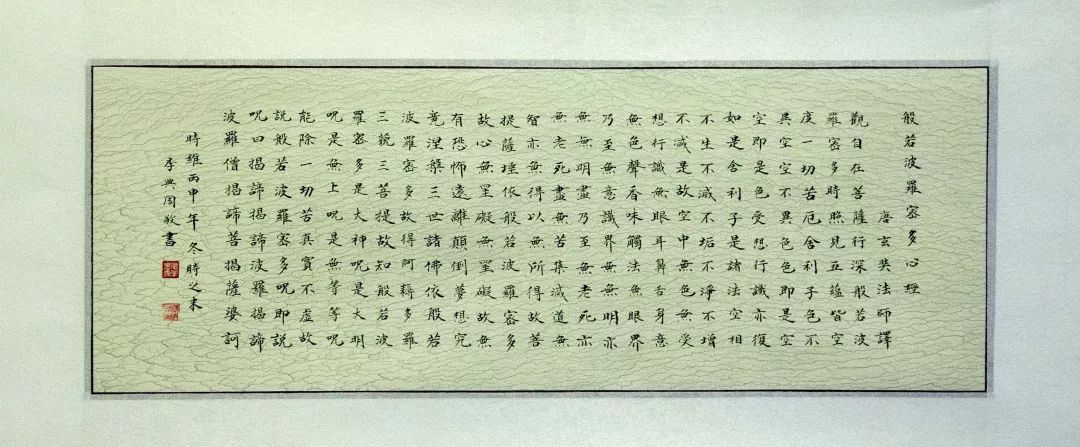 般若波羅密多心經
唐玄奘法師譯
觀自在菩薩行深般若波
羅密多時照見五蘊皆空
度一切苦厄舍利子色不
異空空不異色色即是空
空即是色受想行識亦復
如是舍利子是諸法空相
不生不滅不垢不淨不增
不減是故空中無色無受
想行識無眼耳鼻舌身意
無色聲香味觸法無眼界
乃至無意識界無無明亦
無無明盡乃至無老死亦
無老死盡無苦集滅道無
智亦無得以無所得故菩
提薩埵依般若波羅密多
故心無罣礙無罣礙故無
有恐怖遠離顛倒夢想究
竟涅槃三世諸佛依般若
波羅密多故得阿耨多羅
三藐三菩提故知般若波
羅密多是大神呪是大明
呪是無上呪是無等等呪
能除一切苦真實不虛故
說般若波羅密多呪即說
呪曰揭諦揭諦波羅揭諦
波羅僧揭諦菩揭薩婆訶
時維丙申年冬時之末
李典周敬書